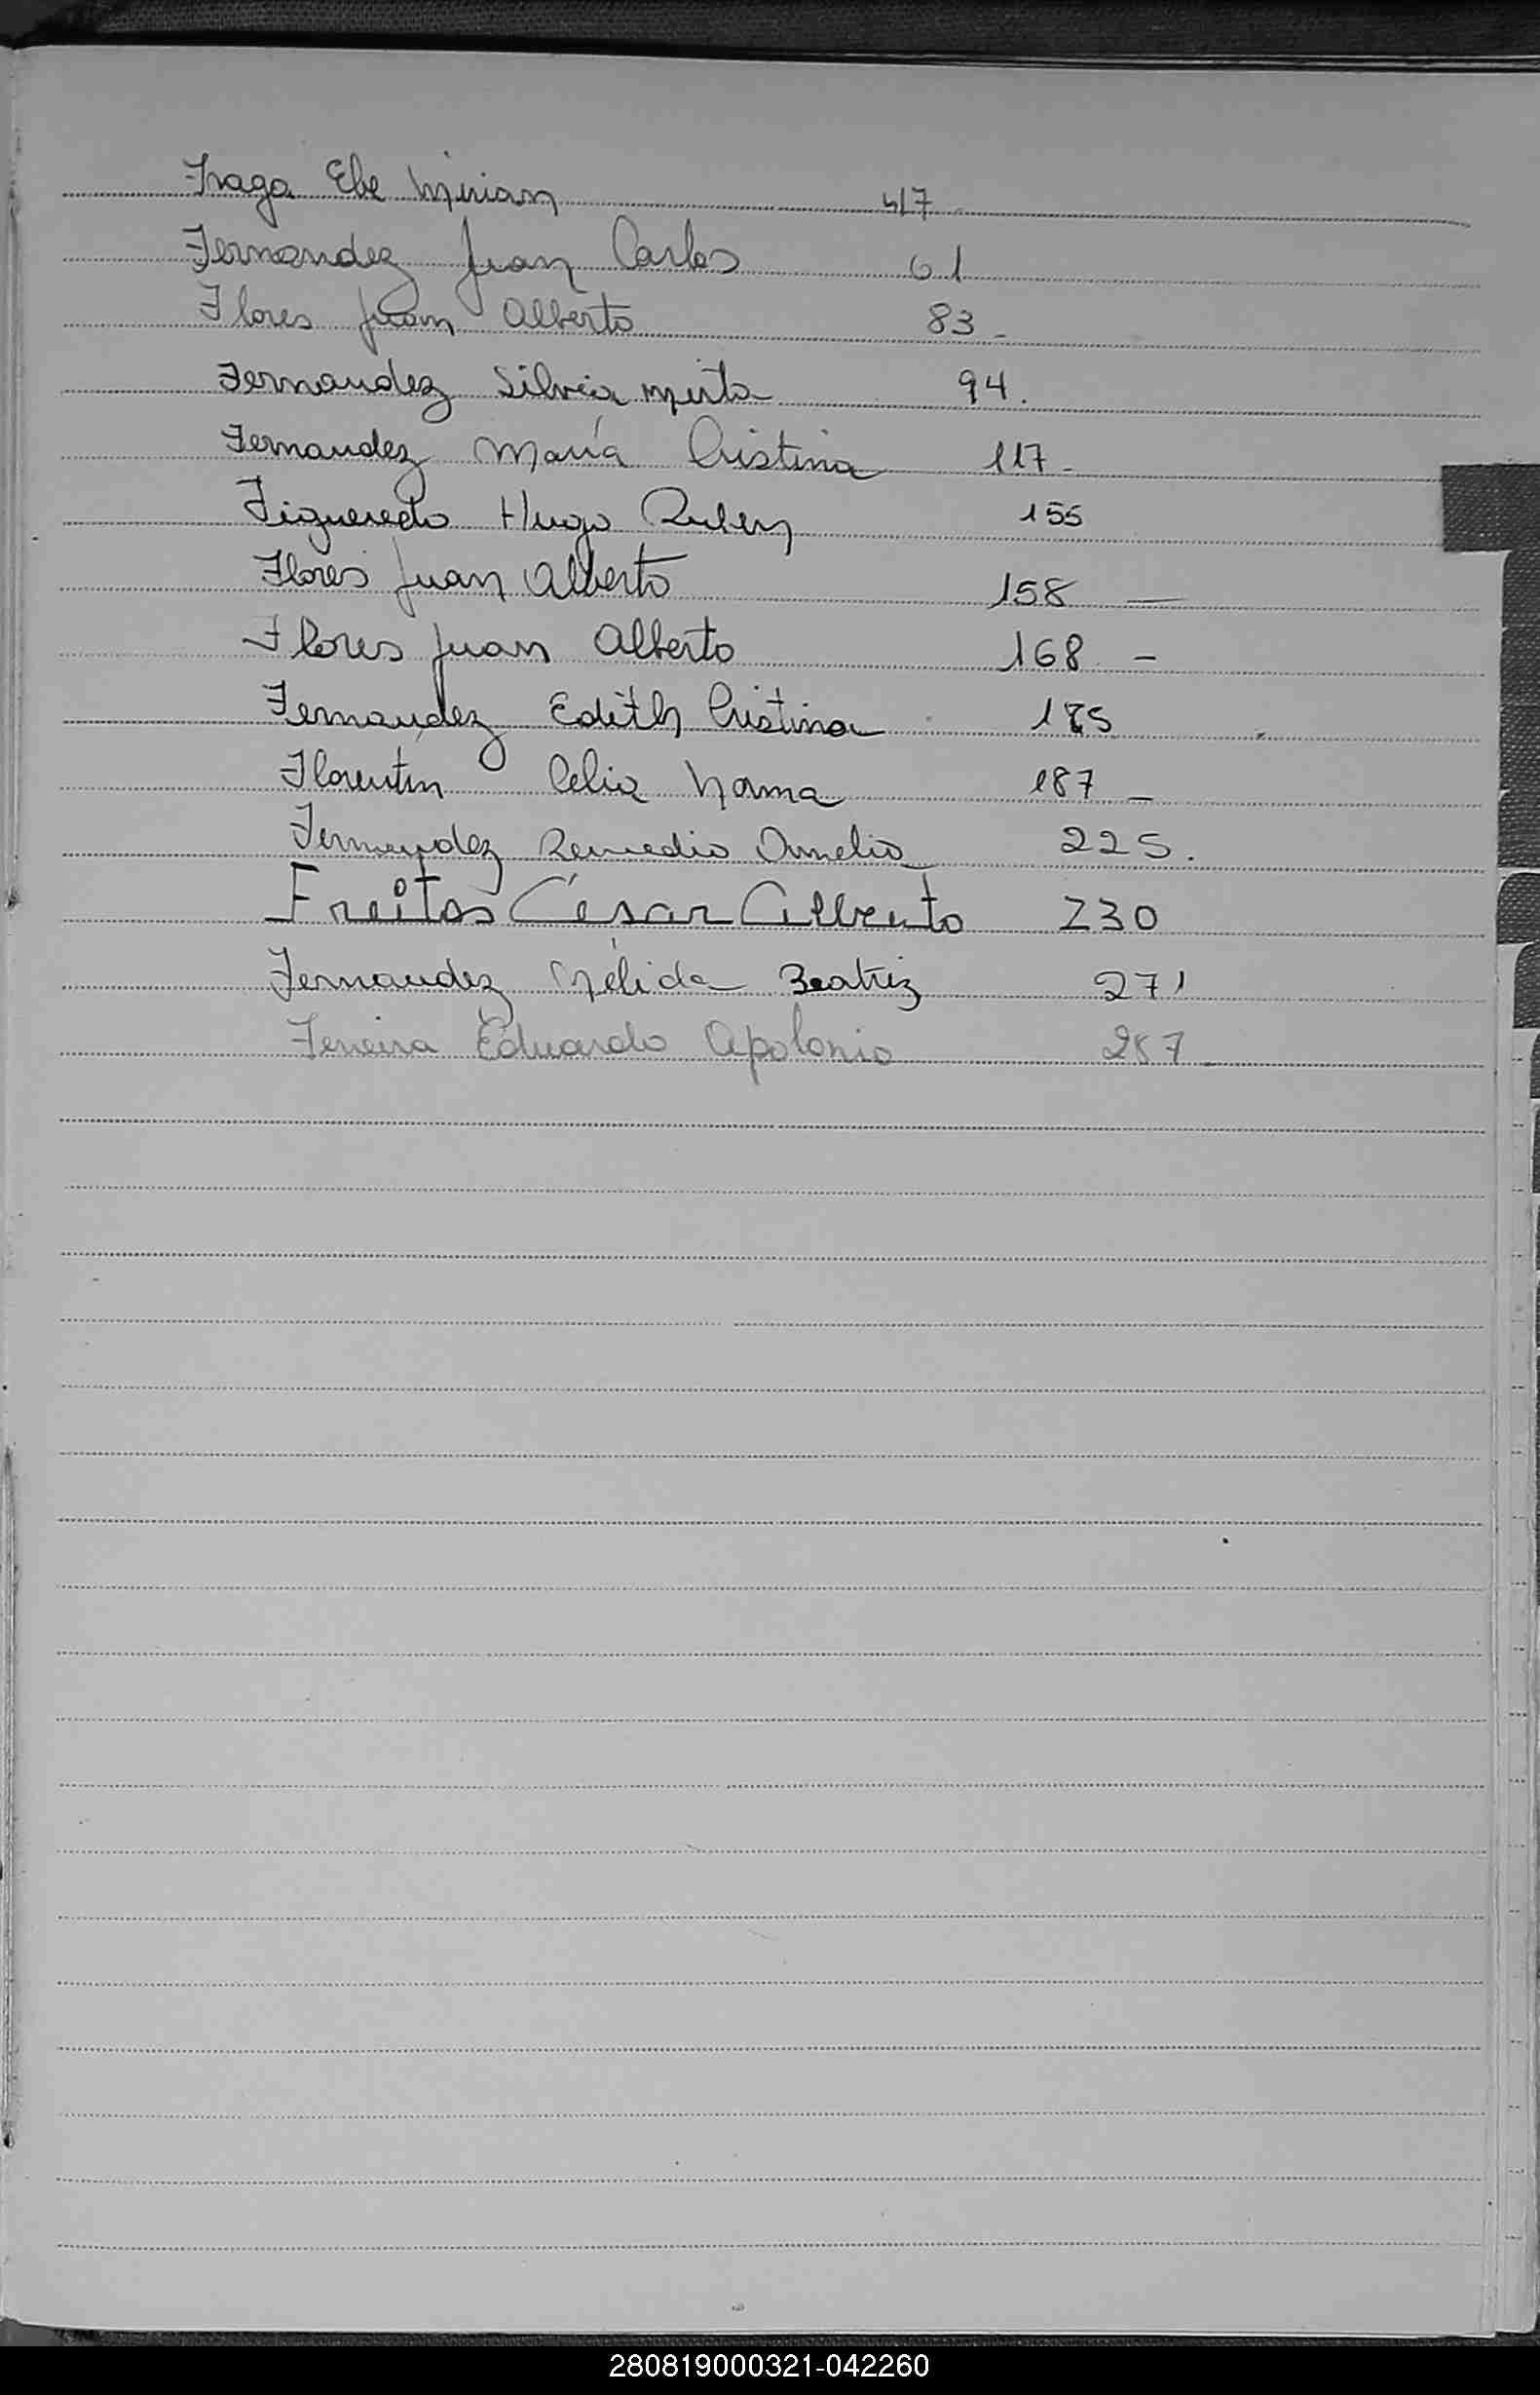 Fraga Ebe Mirian 47
Fernandez Juan Carlos 61
Flores Juan Alberto 83 -
Fernandez Silvia Mirta 94.
Fernandez María Cristina 117 -
Figueredo Hugo Ruben 155
Flores Juan Alberto 158 —
Flores Juan Alberto 168 -
Fernandez Edith Cristina 185
Florentin Celia Norma 187 -
Fernandez Remedio 225.
Freitas César Alberto 230
Fernandez Nélida Beatriz 271
Ferreira Eduardo Apolonio 287 -
280819000321-042260